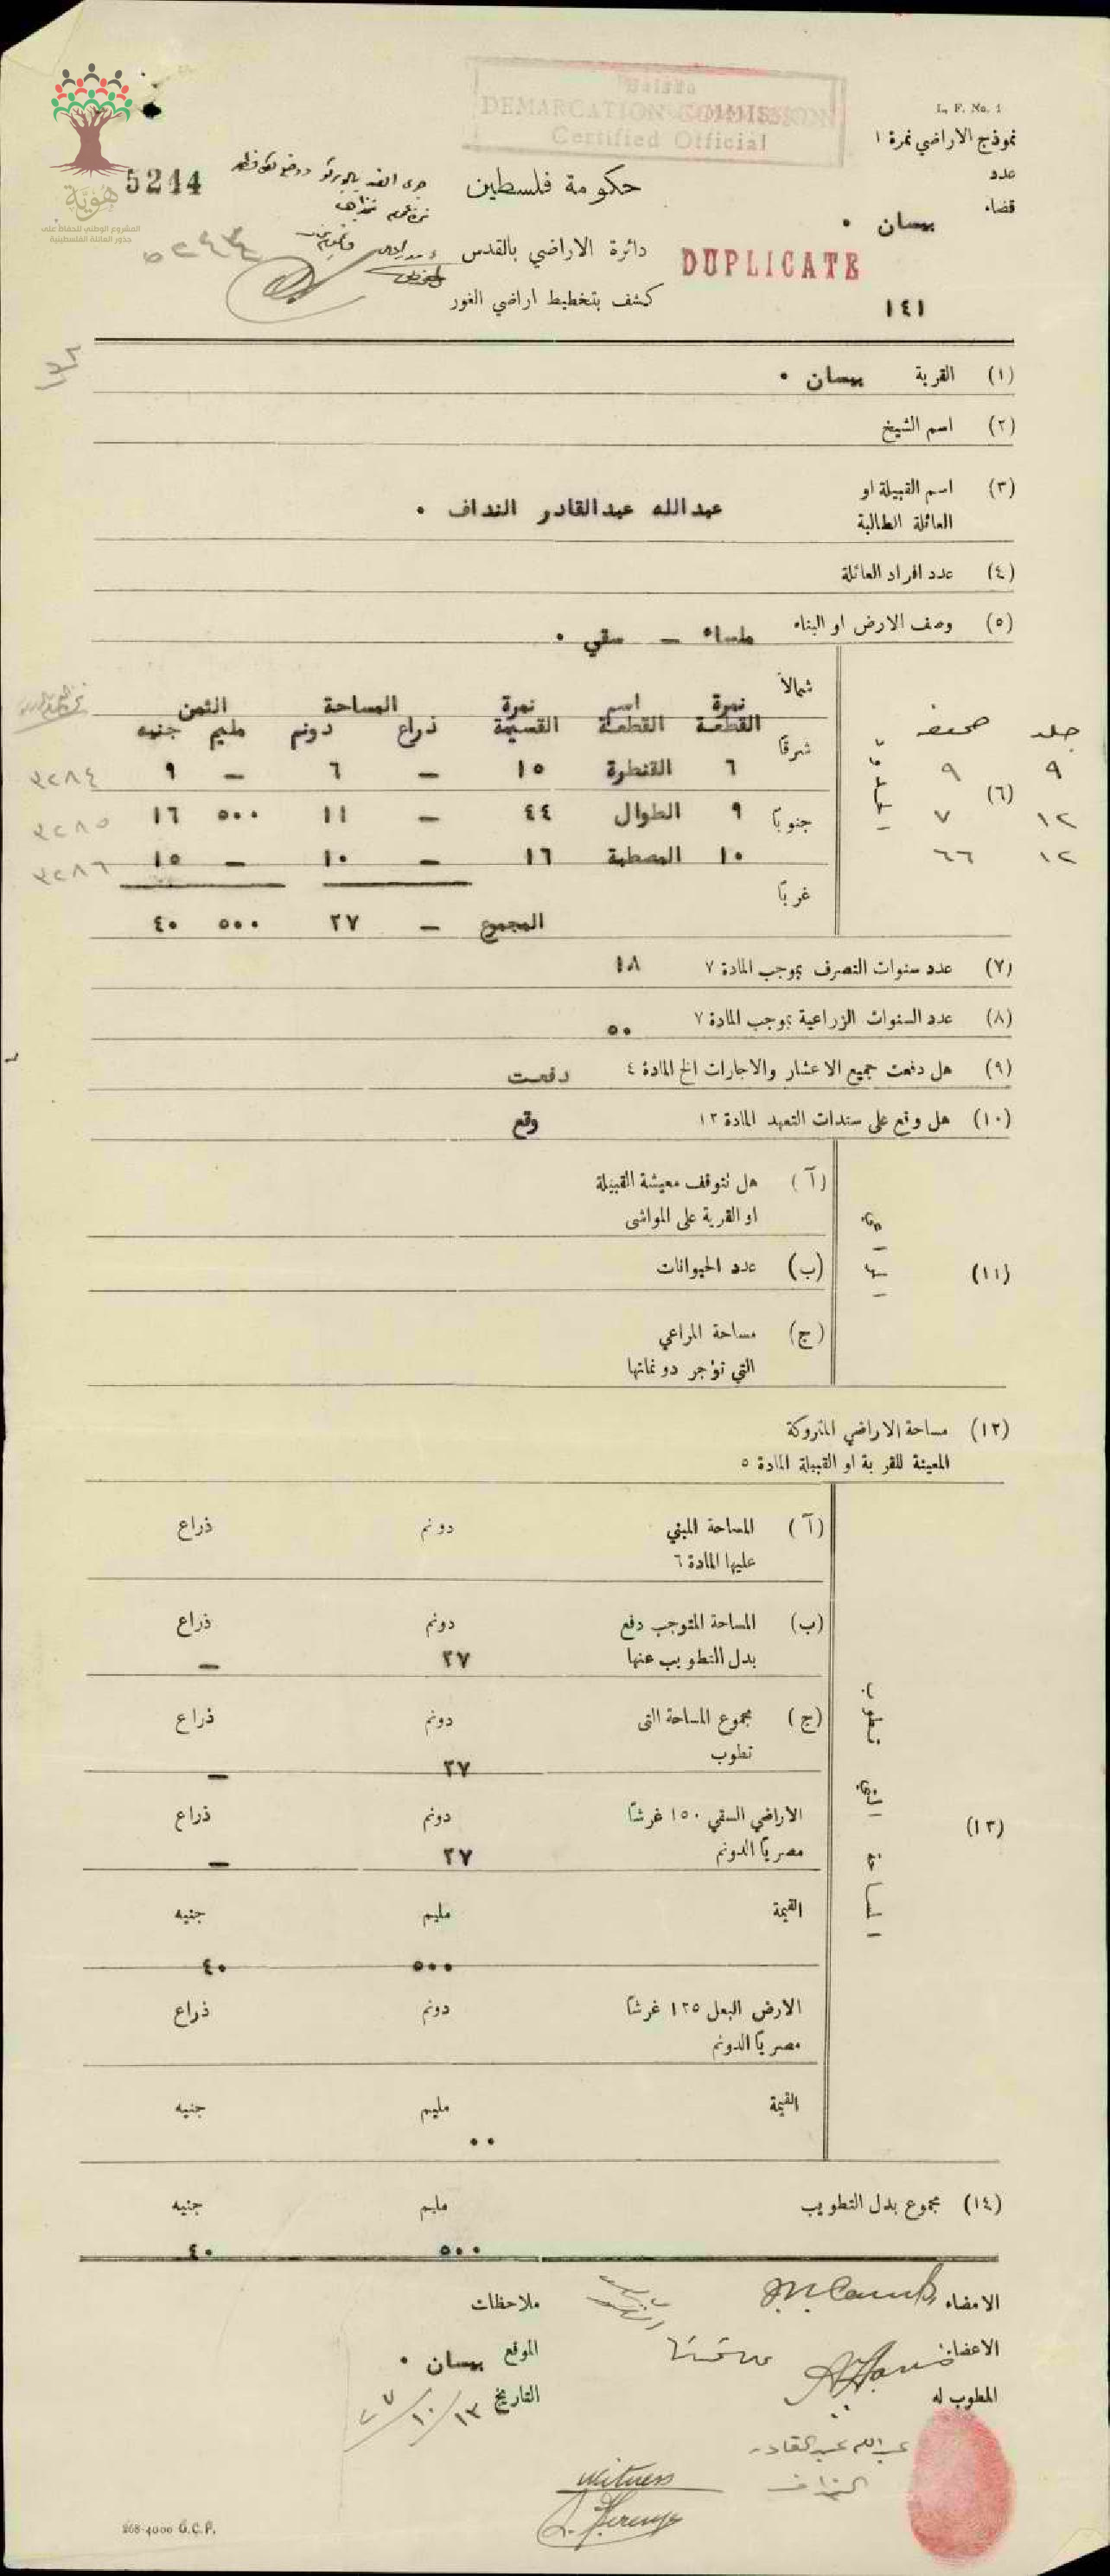 L. F. No. 1
نموذج الاراضي نمرة ١
عدد
قضاء
بيسان ٠
Beisan
DEMARCATION COMMISSION
Certified Official
هوية
المشروع الوطني للحفاظ على
جذور العائلة الفلسطينية
5244
حكومة فلسطين
دائرة الاراضي بالقدس
DUPLICATE
كشف بتخطيط اراضي الغور
١٤١
(١) القرية بيسان ٠
(٢) اسم الشيخ
(٣) اسم القبيلة او
العائلة الطالبة
عبدالله عبدالقادر النداف ٠
(٤) عدد افراد العائلة
(٥) وصف الارض او البناء ملساء — سقي ٠
(٦)
شمالاً
شرقاً
جنوباً
غرباً
جلد صحيفه نمرة القطعة اسم القطعة نمرة القسيمة المساحة ذراع دونم الثمن مليم جنيه
٩ ٩ ٦ القنطرة ١٥ — ٦ — ٩ ٣٢٨٤
١٢ ٧ ٩ الطوال ٤٤ — ١١ ٥٠٠ ١٦ ٣٢٨٥
١٢ ٦٦ ١٠ المصطبة ١٦ — ١٠ — ١٥ ٣٢٨٦
المجموع — ٢٧ ٥٠٠ ٤٠
(٧) عدد سنوات التصرف بموجب المادة ٧ ١٨
(٨) عدد السنوات الزراعية بموجب المادة ٧ ٥٠
(٩) هل دفعت جميع الاعشار والاجارات الخ المادة ٤ دفعت
(١٠) هل وقع على سندات التعهد المادة ١٣ وقع
(١١)
(آ) هل تتوقف معيشة القبيلة
او القرية على المواشي
(ب) عدد الحيوانات
(ج) مساحة المراعي
التي تؤجر دونماتها
(١٢) مساحة الاراضي المتروكة
المعينة للقرية او القبيلة المادة ٥
(١٣)
(آ) المساحة المبني دونم ذراع
عليها المادة ٦
(ب) المساحة المتوجب دفع دونم ذراع
بدل التطويب عنها ٢٧ —
(ج) مجموع المساحة التي دونم ذراع
تطوب ٢٧ —
الاراضي السقي ١٥٠ غرشاً دونم ذراع
مصرياً الدونم ٢٧ —
القيمة مليم جنيه
٥٠٠ ٤٠
الارض البعل ١٢٥ غرشاً دونم ذراع
مصرياً الدونم
القيمة مليم جنيه
٠٠
(١٤) مجموع بدل التطويب مليم جنيه
٥٠٠ ٤٠
الامضاء
ملاحظات
الاعضاء
الموقع بيسان ٠
المطوب له
التاريخ ١٣/١٠/٢٧
عبدالله عبدالقادر
النداف
witness
268-4000 G.C.P.